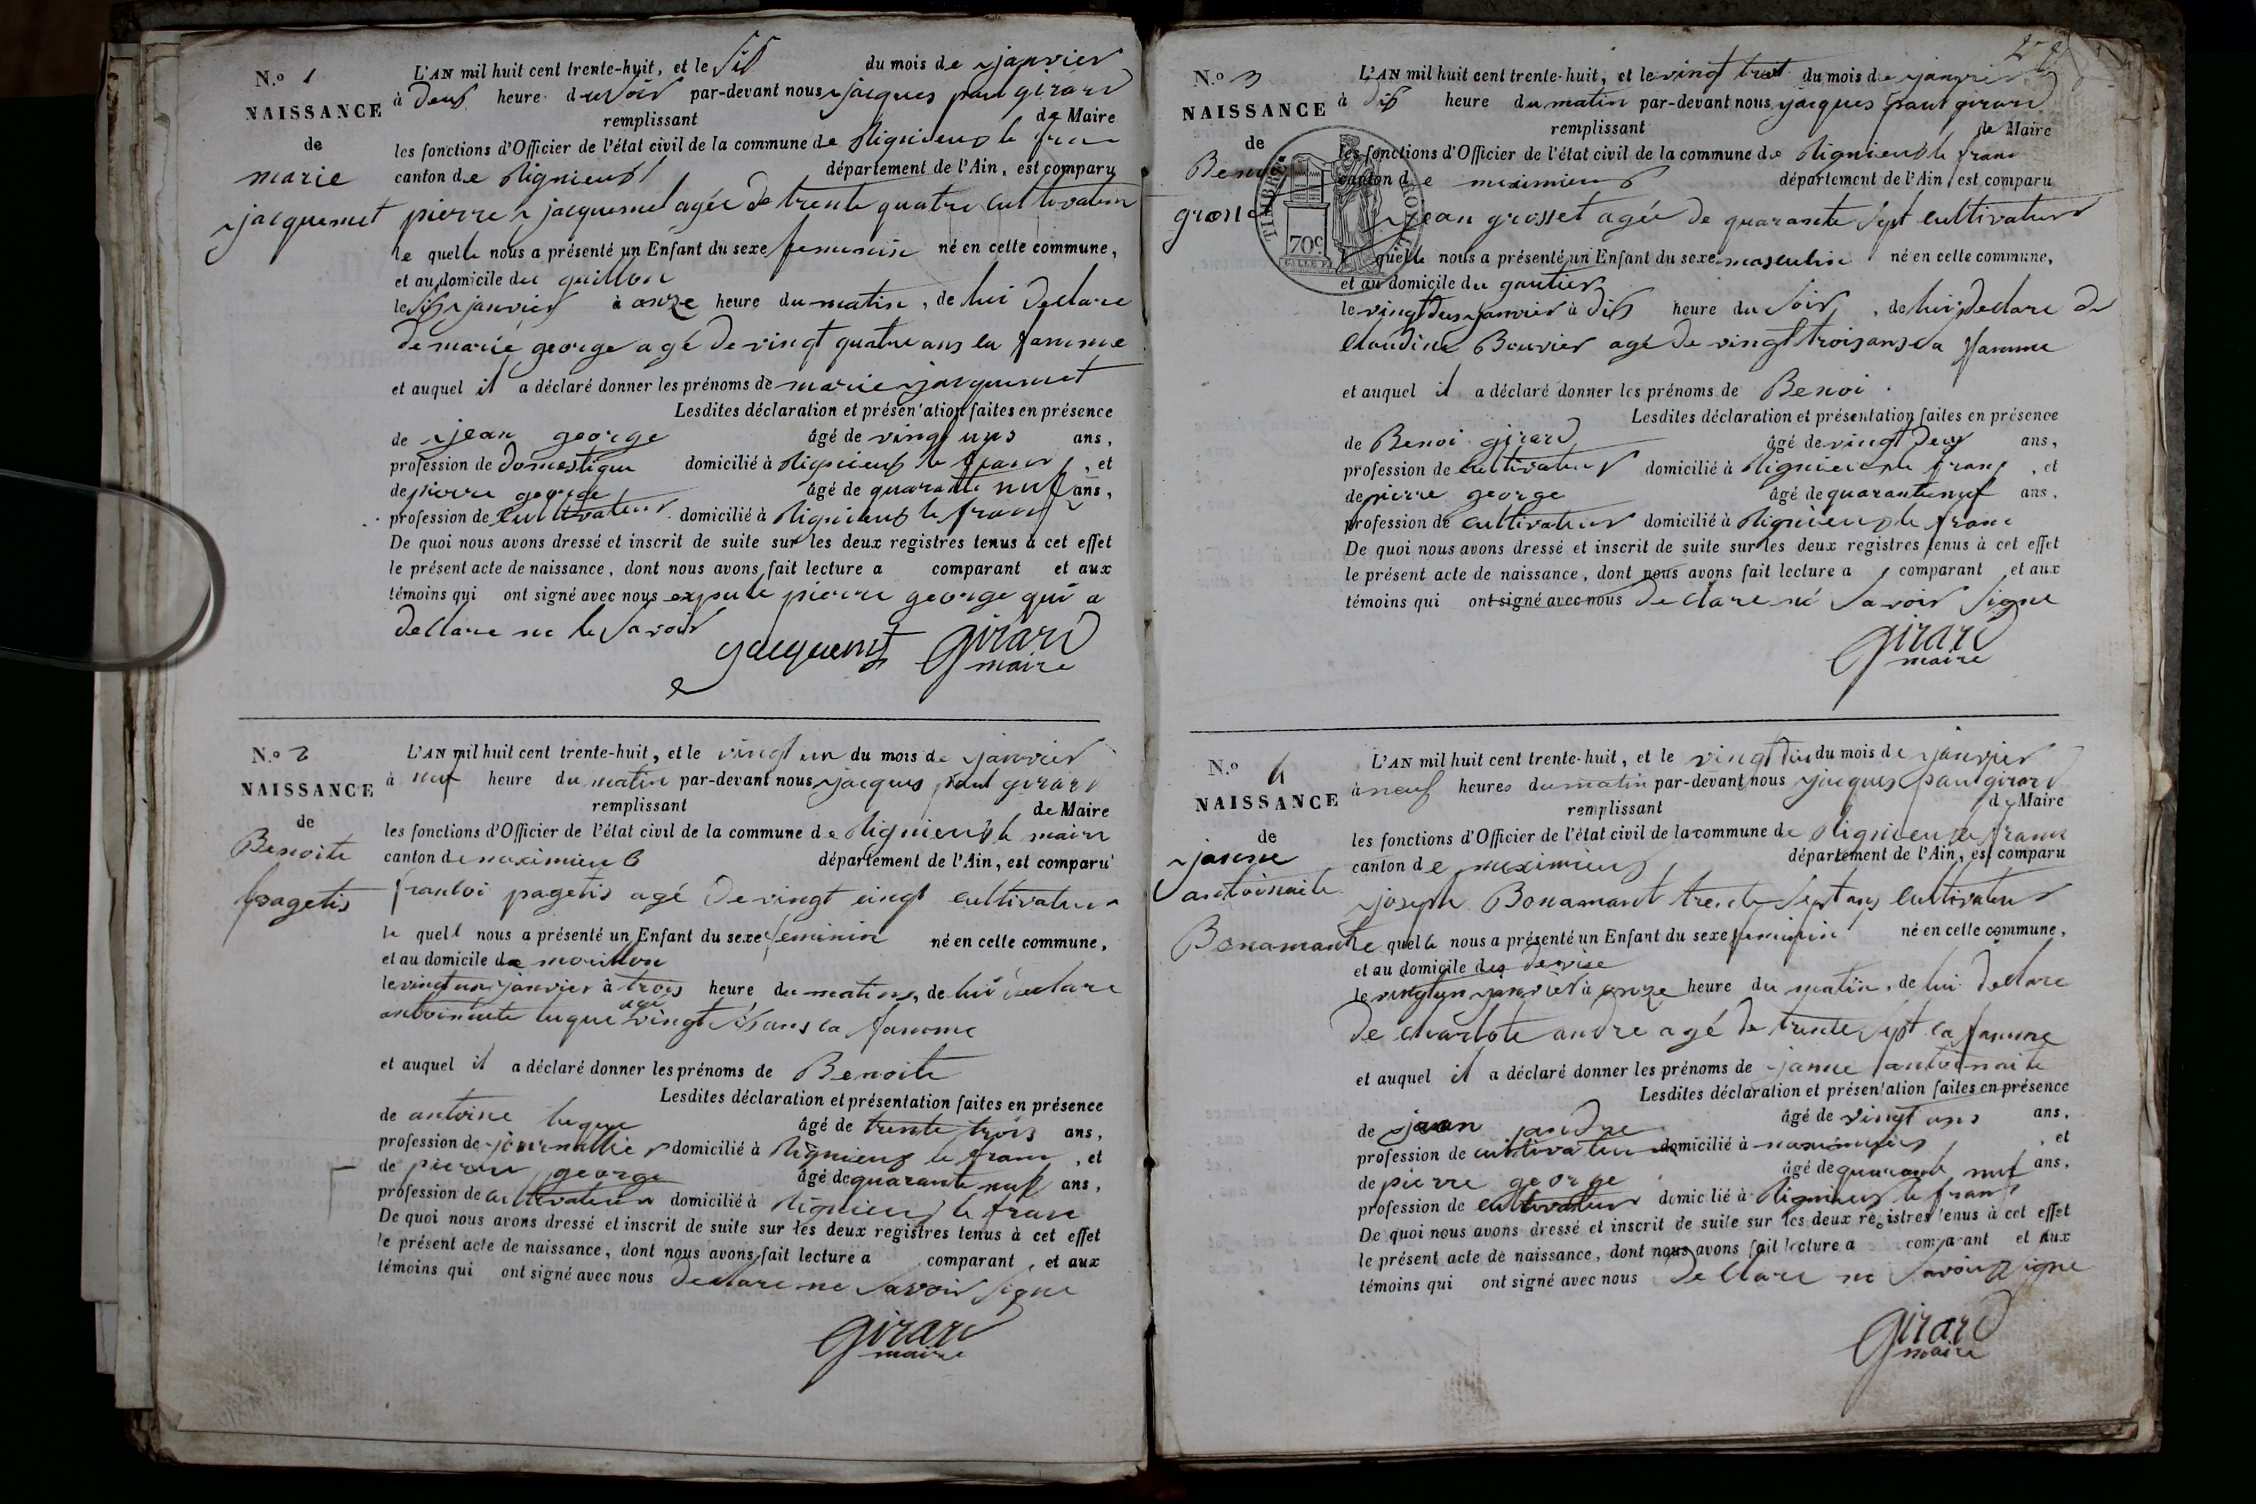 N.o 1
NAISSANCE
de
marie
jacquemet
L'AN mil huit cent trente-huit, et le six du mois de janvier
à deux heure du soir par-devant nous jacques paul girard
remplissant de Maire
les fonctions d'Officier de l'état civil de la commune de Rignieux le franc
canton de Rignieux département de l'Ain, est comparu
pierre jacquemet agée de trente quatre cultivateur
le quelle nous a présenté un Enfant du sexe feminin né en cette commune,
et au domicile du guillon
le six janvier à onze heure du matin, de lui declare
de marie george agé de vingt quatre ans la famme
et auquel il a déclaré donner les prénoms de marie jacquemet
Lesdites déclaration et présen'ation faites en présence
de jean george âgé de vingt uns ans,
profession de domestique domicilié à Rignieux le franc, et
de pierre george âgé de quarante nuf ans,
profession de cultivateur domicilié à Rignieux le franc
De quoi nous avons dressé et inscrit de suite sur les deux registres tenus à cet effet
le présent acte de naissance, dont nous avons fait lecture a comparant et aux
témoins qui ont signé avec nous expute pierre george qui a
declare ne le savoir
jacquemet girard
maire
N.o 2
NAISSANCE
de
Benoite
pagetis
L'AN mil huit cent trente-huit, et le vingt un du mois de janvier
à neuf heure du matin par-devant nous jacques paul girard
remplissant de Maire
les fonctions d'Officier de l'état civil de la commune de Rignieux le maire
canton de maximieux département de l'Ain, est comparu
francoi pagetis agé de vingt cinqt cultivateur
le quell nous a présenté un Enfant du sexe feminin né en cette commune,
et au domicile de morillon
le vingt un janvier à trois heure du matins, de lui declare
antoinaite luque agé vingt six ans la famme
et auquel il a déclaré donner les prénoms de Benoite
Lesdites déclaration et présentation faites en présence
de antoine luque âgé de trente trois ans,
profession de journallier domicilié à Rignieux le franc, et
de pierre george âgé de quarante nuf ans,
profession de cultivateur domicilié à Rignieux le franc
De quoi nous avons dressé et inscrit de suite sur les deux registres tenus à cet effet
le présent acte de naissance, dont nous avons fait lecture a comparant, et aux
témoins qui ont signé avec nous declare ne savoir signe
girard
maire
N.o 3
NAISSANCE
de
Benoi
grosset
TIMBRE ROYAL
70c
L'AN mil huit cent trente-huit, et le vingt trat du mois de janvier
à dix heure du matin par-devant nous jacques paul girard
remplissant de Maire
les fonctions d'Officier de l'état civil de la commune de Rignieux le franc
canton de meximieux département de l'Ain, est comparu
jean grosset agée de quarante sept cultivateur
quelle nous a présenté un Enfant du sexe masculin né en cette commune,
et au domicile du gautier
le vingt deux janvier à dix heure du soir, de lui declare de
Claudine Bouvier agé de vingt trois ans la famme
et auquel il a déclaré donner les prénoms de Benoi
Lesdites déclaration et présentation faites en présence
de Benoi girard âgé de vingt deux ans,
profession de cultivateur domicilié à Rignieux le franc, et
de pierre george âgé de quarante nuf ans,
profession de cultivateur domicilié à Rignieux le franc
De quoi nous avons dressé et inscrit de suite sur les deux registres tenus à cet effet
le présent acte de naissance, dont nous avons fait lecture a comparant et aux
témoins qui ont signé avec nous declare né savoir signe
girard
maire
N.o 4
NAISSANCE
de
janne
antoinaite
Bonamant
L'AN mil huit cent trente-huit, et le vingt du mois de janvier
à neuf heures du matin par-devant nous jacques paul girard
remplissant de Maire
les fonctions d'Officier de l'état civil de la commune de Rignieux le franc
canton de meximieux département de l'Ain, est comparu
joseph Bonamant trente sept ans cultivateur
le quelle nous a présenté un Enfant du sexe feminin né en cette commune,
et au domicile des
le vingt un janvier à onze heure du matin, de lui declare
de charlote andré agé de trente sept la famme
et auquel il a déclaré donner les prénoms de janne antoinaite
Lesdites déclaration et présen'ation faites en présence
de jean andre âgé de vingt ans ans,
profession de cultivateur domicilié à maximieux, et
de pierre george âgé de quarante nuf ans,
profession de cultivateur domicilié à Rignieux le franc
De quoi nous avons dressé et inscrit de suite sur les deux registres tenus à cet effet
le présent acte de naissance, dont nous avons fait lecture a comparant et aux
témoins qui ont signé avec nous declare ne savoir signe
girard
maire